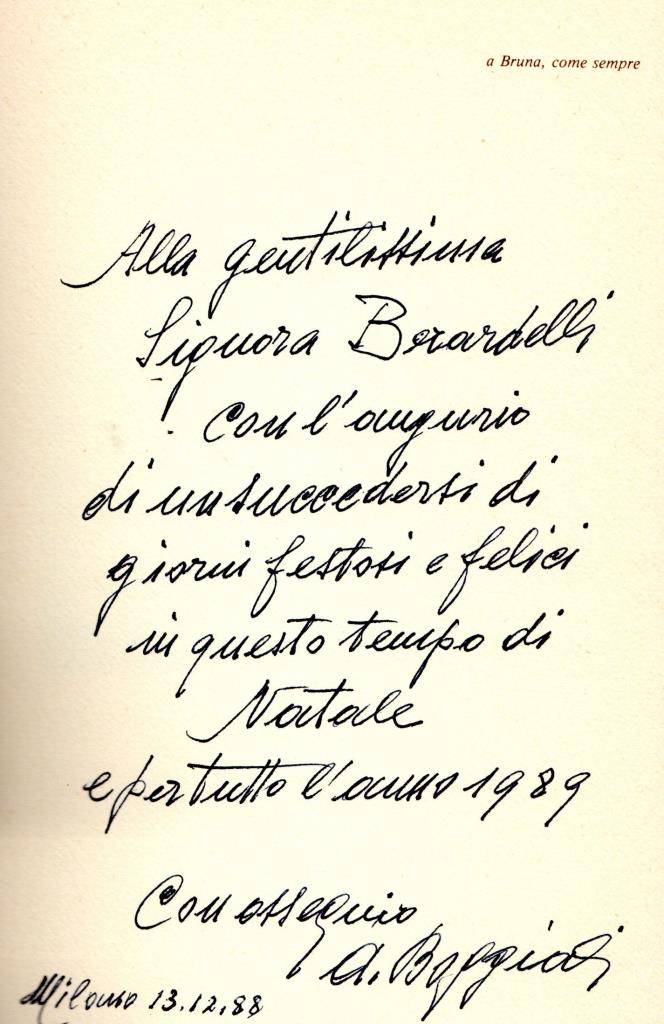 a Bruna, come sempre
Alla gentilissima
Signora Berardelli
con l'augurio
di un succedersi di
giorni festosi e felici
in questo tempo di
Natale
e per tutto l'anno 1989
Con ossequio
A.
Milano 13.12.88